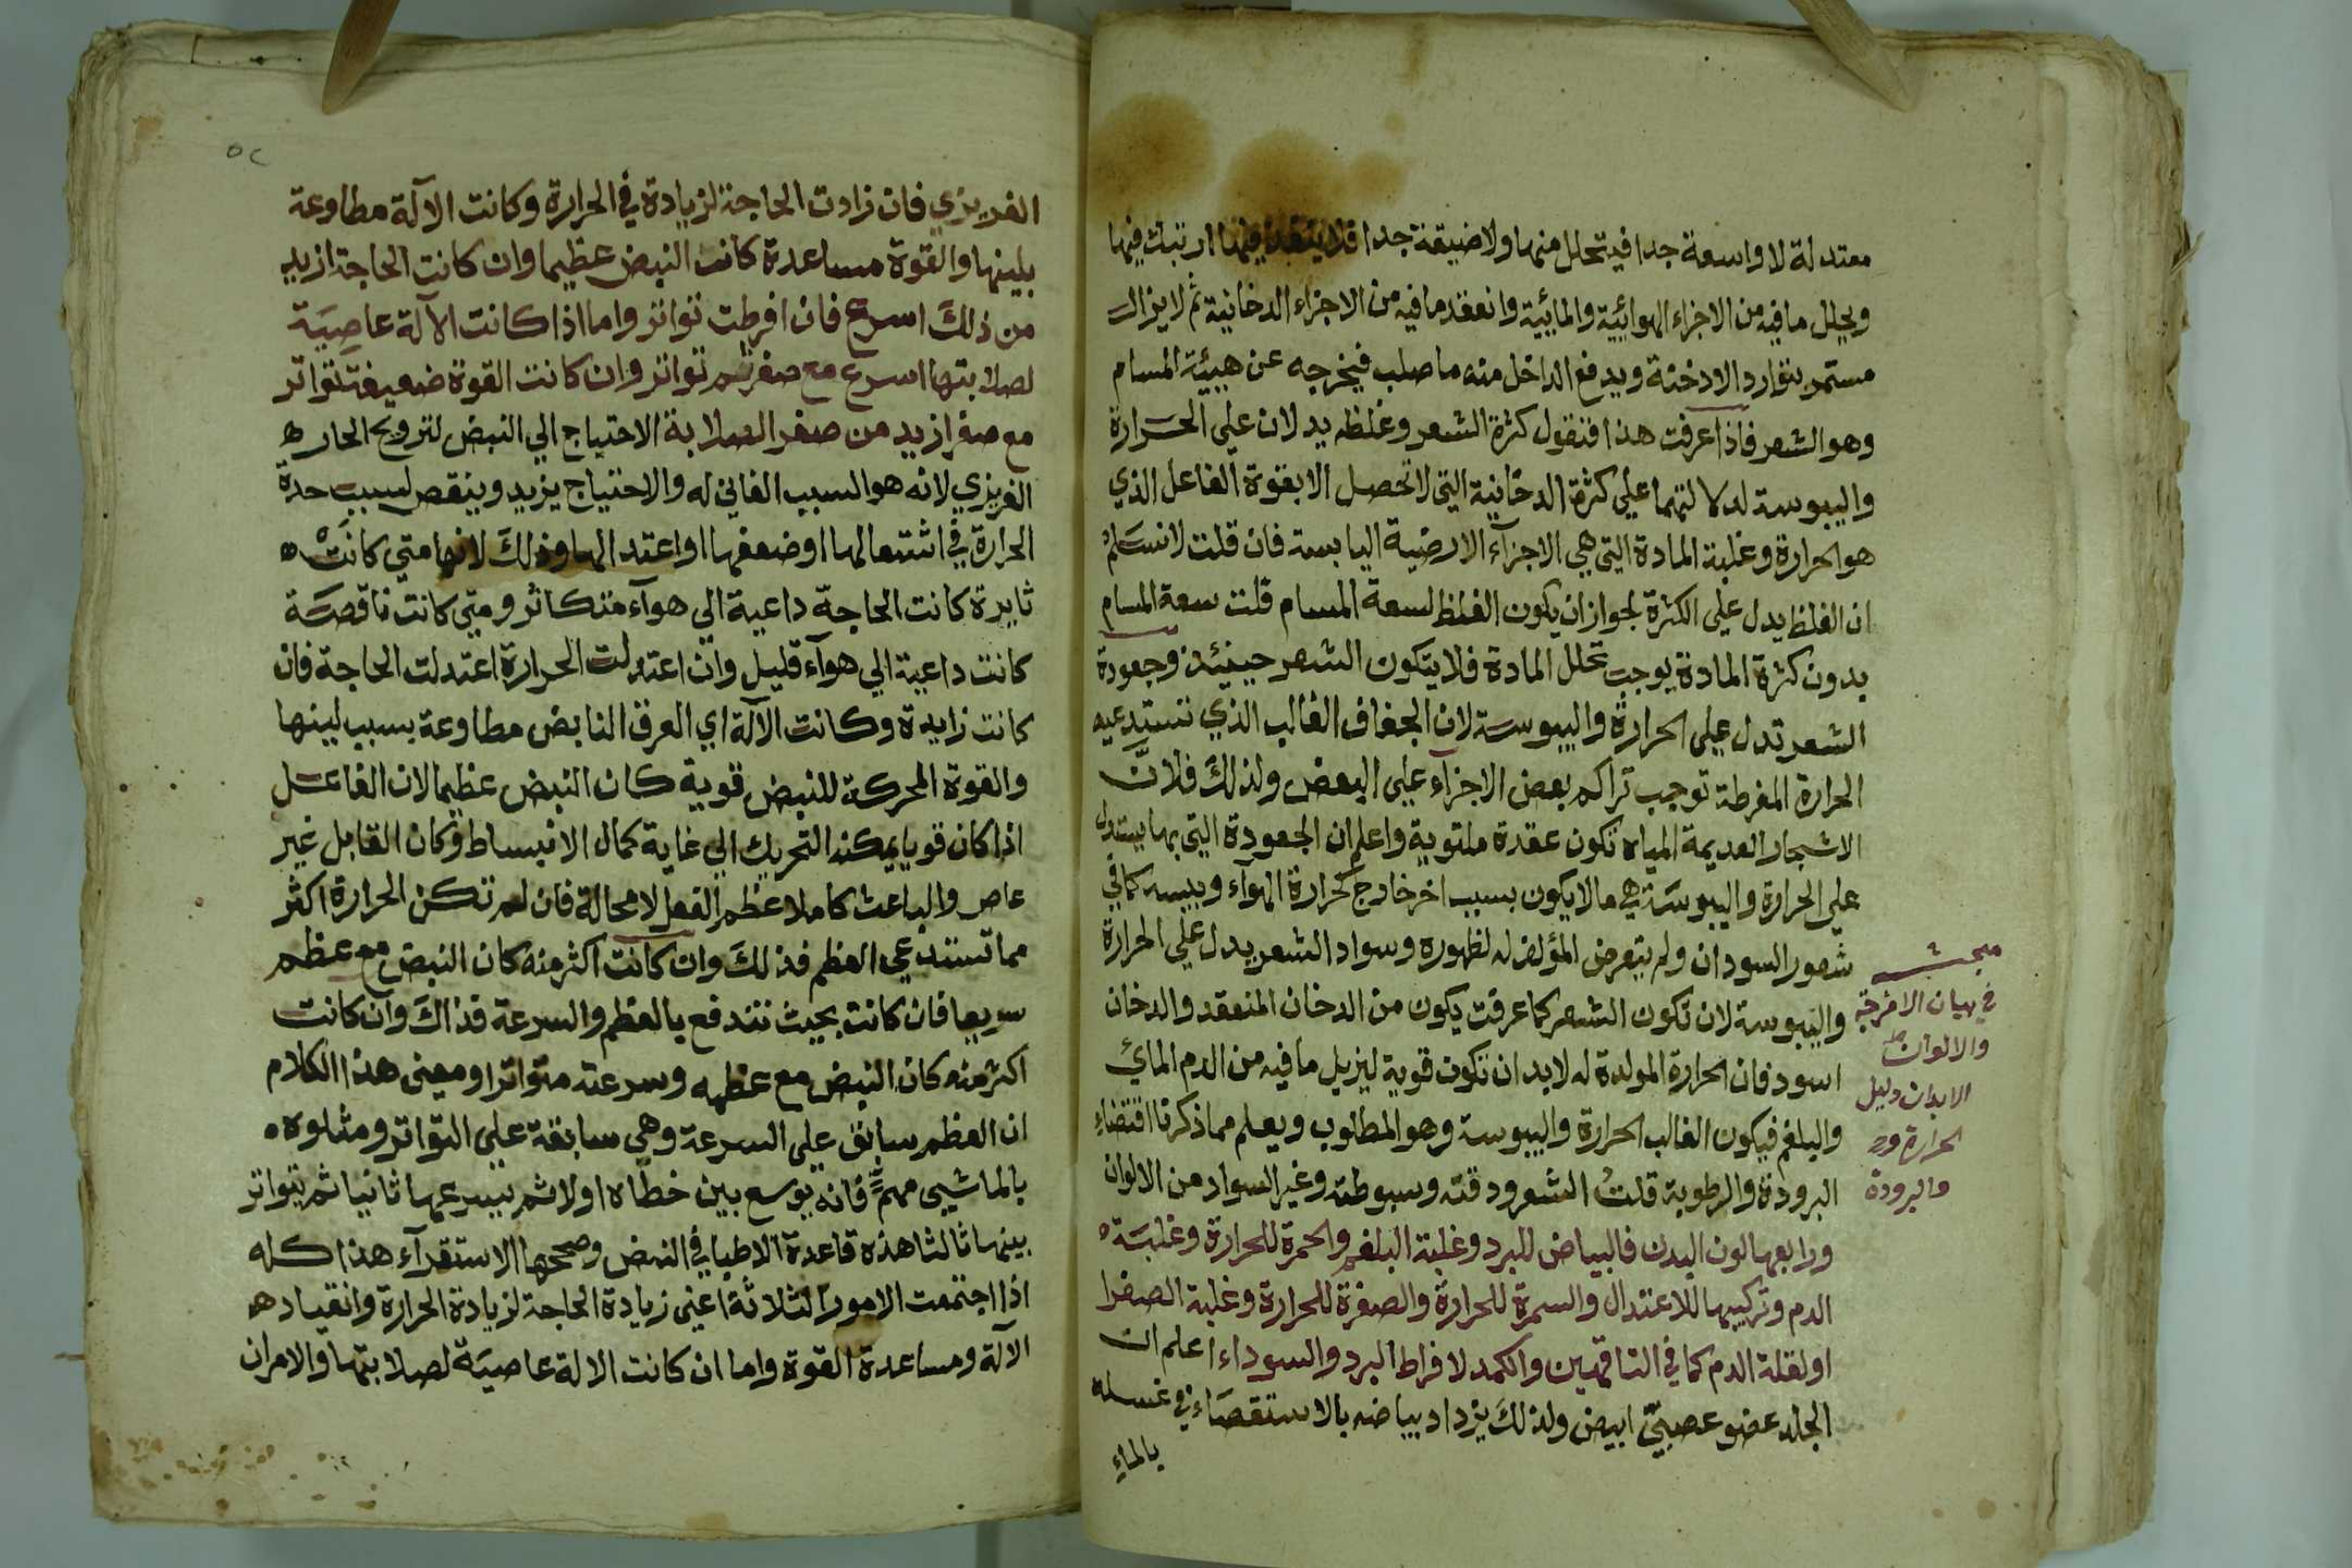 معتدلة لا واسعة جدا فيتحلل منها ولا ضيقة جدا فلا ينفذ فيها ارتبك فيها
ويحلل ما فيه من الاجزاء الهوائية والمائية وانعقد ما فيه من الاجزاء الدخانية ثم لا يزال
مستمر بتوارد الادخنة ويدفع الداخل منه ما صلب فيخرجه عن هيئة المسام
وهو الشعر فاذا عرفت هذا فنقول كثرة الشعر وغلظه يدلان على الحرارة
واليبوسة لدلالتهما على كثرة الدخانية التي لا تحصل الا بقوة الفاعل الذي
هو الحرارة وغلبة المادة التي هي الاجزآء الارضية اليابسة فان قلت لا نسلم
ان الغلظ يدل على الكثرة لجواز ان يكون الغلظ لسعة المسام قلت سعة المسام
بدون كثرة المادة يوجب تحلل المادة فلا يتكون الشعر حينئذ وجعودة
الشعر تدل على الحرارة واليبوسة لان الجفاف الغالب الذي تستدعيه
الحرارة المفرطة توجب تراكم بعض الاجزآء على البعض ولذلك فلان
الاشجار العديمة المياه تكون عقدة ملتوية واعلم ان الجعودة التي بها يستدل
على الحرارة واليبوسة هي ما لا يكون بسبب اخر خارج كحرارة الهوآء ويبسه كما في
شعور السودان ولم يتعرض المؤلف له لظهوره وسواد الشعر يدل على الحرارة
واليبوسة لان تكون الشعر كما عرفت يكون من الدخان المنعقد والدخان
اسود فان الحرارة المولدة له لا بد ان تكون قوية ليزيل ما فيه من الدم المائي
والبلغم فيكون الغالب الحرارة واليبوسة وهو المطلوب ويعلم مما ذكرنا اقتضاء
البرودة والرطوبة قلت الشعر ودقته وسبوطته وغير السواد من الالوان
ورابعها لون البدن فالبياض للبرد وغلبة البلغم والحمرة للحرارة وغلبة
الدم وتركيبها للاعتدال والسمرة للحرارة والصفرة للحرارة وغلبة الصفرا
او لقلة الدم كما في الناقهين والكمد لافراط البرد والسوداء اعلم ان
الجلد عضو عصبي ابيض ولذلك يزداد بياضه بالاستقصاء في غسله
بالماء
مبحث
في بيان الامزجة
والالوان
الابدان دليل
الحرارة
والبرودة
٥٢
الغريزي فان زادت الحاجة لزيادة في الحرارة وكانت الآلة مطاوعة
بلينها والقوة مساعدة كانت النبض عظيما وان كانت الحاجة ازيد
من ذلك اسرع فان افرطت تواتر واما اذا كانت الآلة عاصية
لصلابتها اسرع مع صغر ثم تواتر وان كانت القوة ضعيفة تواتر
مع صغر ازيد من صغر الصلابة الاحتياج الي النبض لترويح الحار
الغريزي لانه هو السبب الغائي له والاحتياج يزيد وينقص لسبب حدة
الحرارة في اشتعالها او ضعفها او اعتدالها وذلك لانها متي كانت
ثايرة كانت الحاجة داعية الي هوآء متكاثر ومتي كانت ناقصة
كانت داعية الي هوآء قليل وان اعتدلت الحرارة اعتدلت الحاجة فان
كانت زايدة وكانت الآلة اي العرق النابض مطاوعة بسبب لينها
والقوة المحركة للنبض قوية كان النبض عظيما لان الفاعل
اذا كان قويا يمكنه التحريك الي غاية كمال الانبساط وكان القابل غير
عاص والباعث كاملا عظم الفعل لا محالة فان لم تكن الحرارة اكثر
مما تستدعي العظم فذلك وان كانت اكثر منه كان النبض مع عظم
سريعا فان كانت بحيث تندفع بالعظم والسرعة فذاك وان كانت
اكثر منه كان النبض مع عظمه وسرعته متواترا ومعني هذا الكلام
ان العظم سابق علي السرعة وهي سابقة علي التواتر ومثلوه
بالماشي مهم فانه يوسع بين خطاه اولا ثم يسرعها ثانيا ثم يتواتر
بينها ثالثا هذه قاعدة الاطبا في النبض وصححها الاستقرآء هذا كله
اذا اجتمعت الامور الثلاثة اعني زيادة الحاجة لزيادة الحرارة وانقياد
الآلة ومساعدة القوة واما ان كانت الالة عاصية لصلابتها والامران